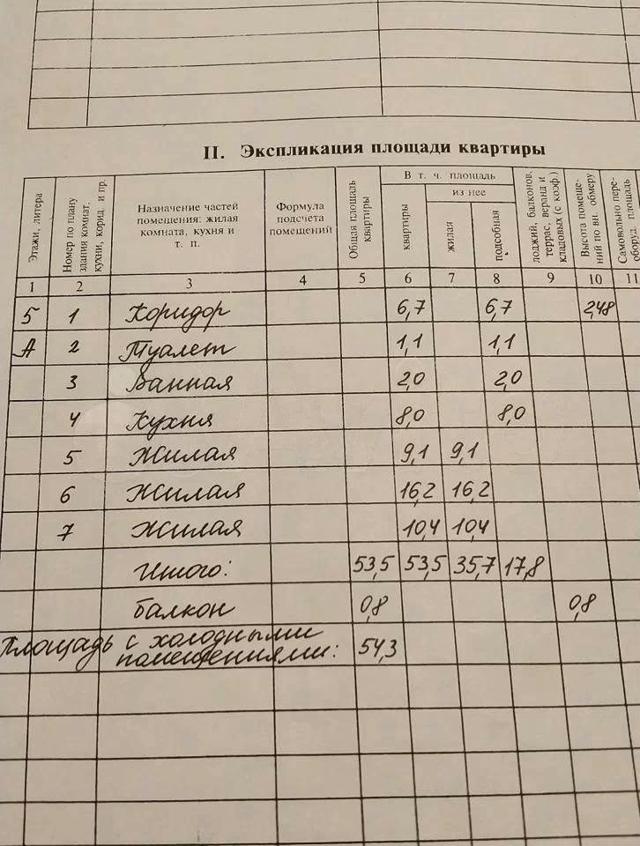 II. Экспликация площади квартиры
Этажи, литера
Номер по плану здания комнат, кухни, корид. и пр.
Назначение частей помещения: жилая комната, кухня и т. п.
Формула подсчета помещений
Общая площадь квартиры
В т. ч. площадь
квартиры
из нее
жилая
подсобная
лоджий, балконов, террас, веранд и кладовых (с коэф.)
Высота помещений по вн. обмеру
Самовольно переоборуд. площадь
1 2 3 4 5 6 7 8 9 10 11
5 1 Коридор 6,7 6,7 2,48
А 2 Туалет 1,1 1,1
3 Ванная 2,0 2,0
4 Кухня 8,0 8,0
5 Жилая 9,1 9,1
6 Жилая 16,2 16,2
7 Жилая 10,4 10,4
Итого: 53,5 53,5 35,7 17,8
балкон 0,8 0,8
Площадь с холодными
помещениями: 54,3